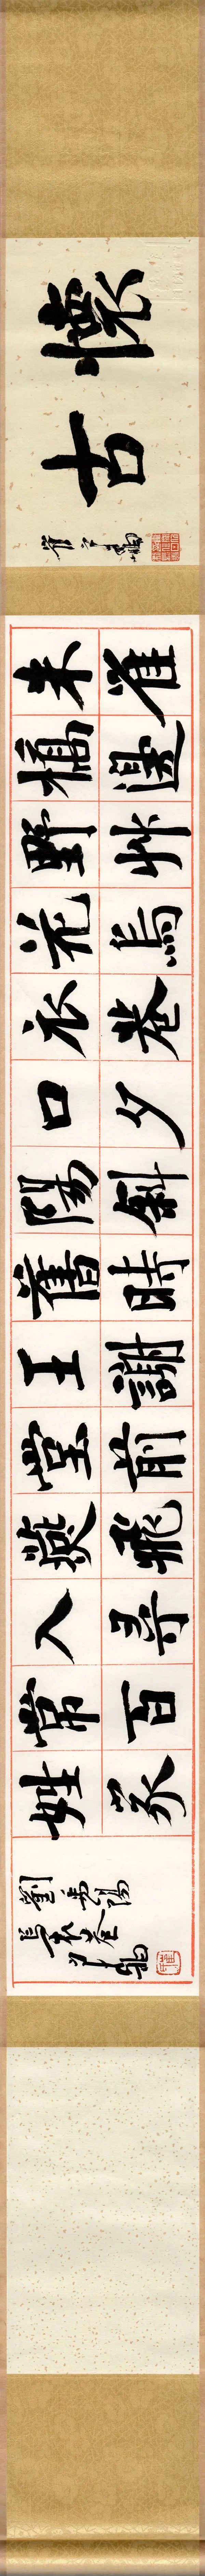 懷古
朱雀
橋邊
野艸
花烏
衣巷
口夕
陽斜
舊時
王謝
堂前
燕飛
入尋
常百
姓家
劉禹錫
烏衣巷